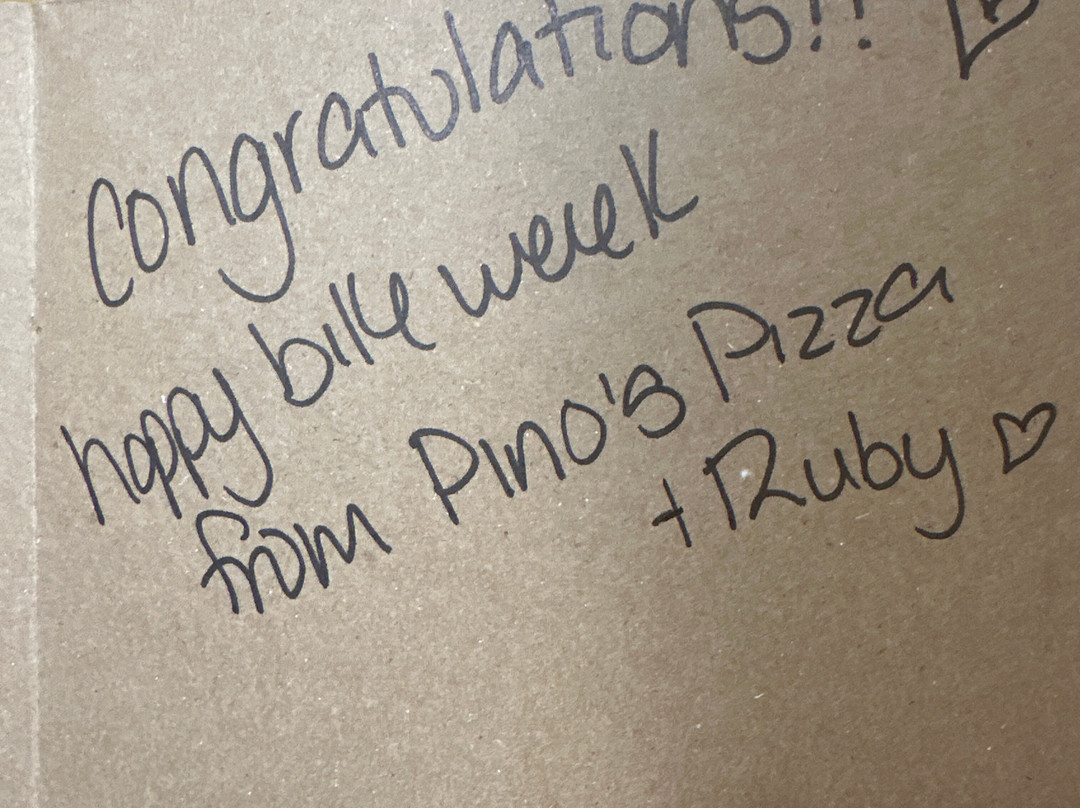 Congratulations!! ♡
happy bike week
from Pino's Pizza
+ Ruby ♡